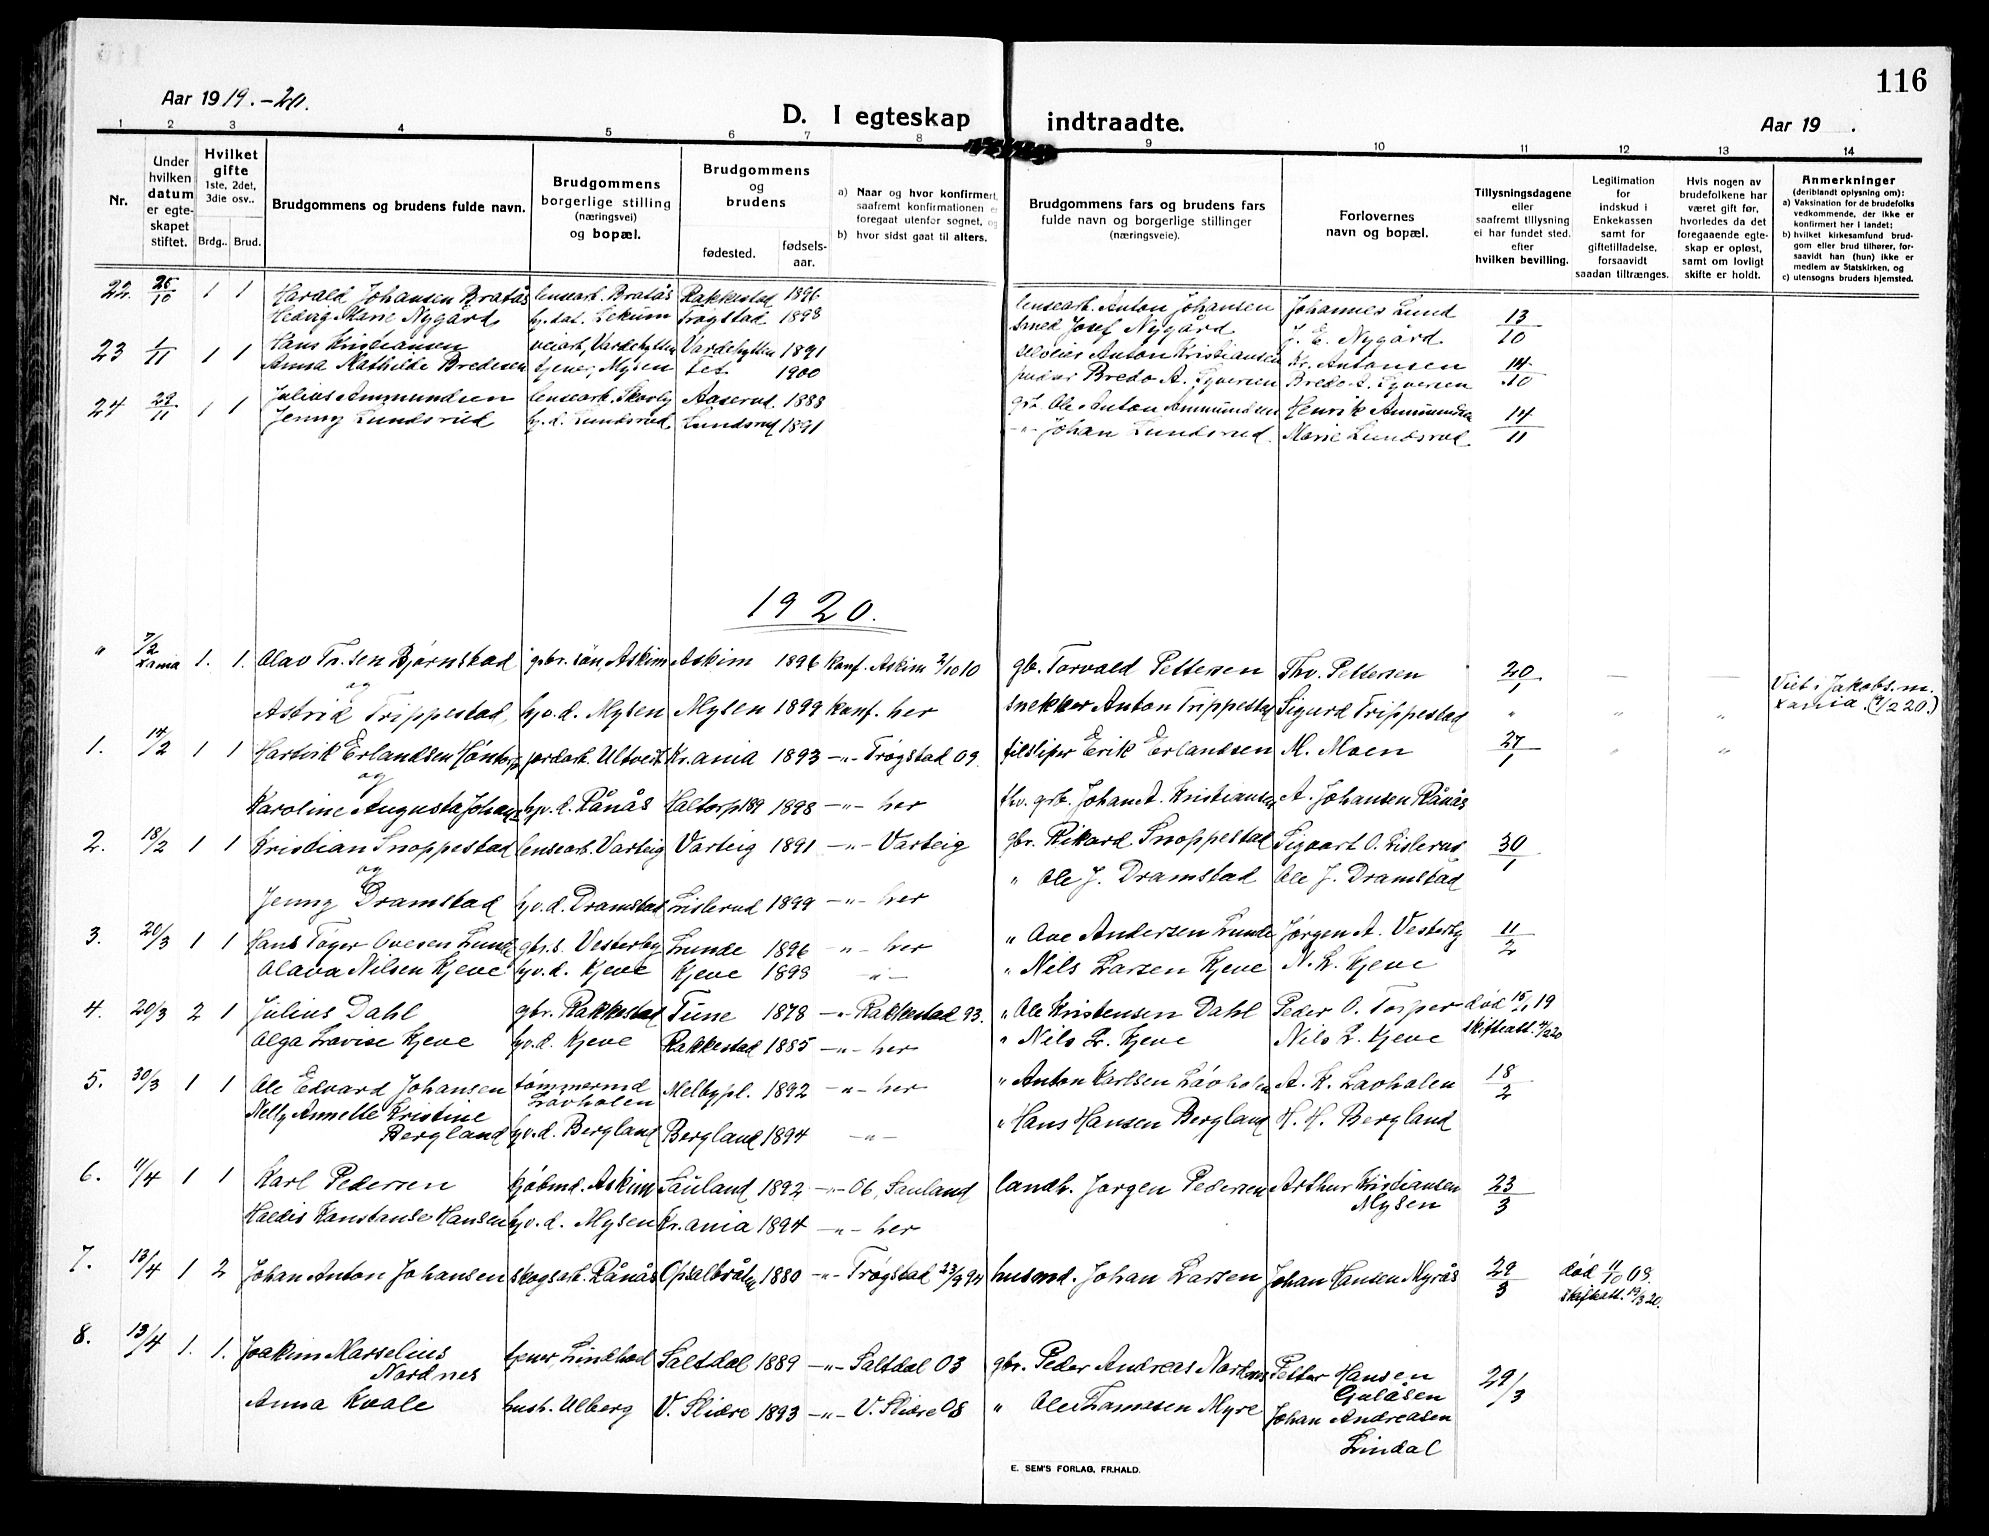 116
Aar 1919.-20.
D. I egteskap indtraadte.
Aar 19 .
1 2 3 4 5 6 7 8 9 10 11 12 13 14
Nr.
Under hvilken datum er egteskapet stiftet.
Hvilket gifte
1ste, 2det, 3die osv..
Brdg.. Brud.
Brudgommens og brudens fulde navn.
Brudgommens borgerlige stilling (næringsvei) og bopæl.
Brudgommens og brudens
fødested.
fødsels-aar.
a) Naar og hvor konfirmert, saafremt konfirmationen er foregaat utenfor sognet, og
b) hvor sidst gaat til alters.
Brudgommens fars og brudens fars fulde navn og borgerlige stillinger (næringsveie).
Forlovernes navn og bopæl.
Tillysningsdagene eller saafremt tillysning ei har fundet sted. efter hvilken bevilling.
Legitimation for indskud i Enkekassen samt for giftetilladelse, forsaavidt saadan tiltrænges.
Hvis nogen av brudefolkene har været gift før, hvorledes da det foregaaende egteskap er opløst, samt om lovligt skifte er holdt.
Anmerkninger (deriblandt oplysning om):
a) Vaksination for de brudefolks vedkommende, der ikke er konfirmert her i landet;
b) hvilket kirkesamfund brudgom eller brud tilhører, forsaavidt han (hun) ikke er medlem av Statskirken, og
c) utensogns bruders hjemsted.
22. 26/10 1 1 Harald Johansen Bratås lensearb. Bratås Rakkestad 1896 lensearb. Anton Johansen Johannes Lund 13/10
Hedvig Marie Nygård hj. dat. Lekum Trøgstad 1898 smed Josef Nygård J. E. Nygård
23 1/11 1 1 Hans Kristiansen veiarb, Vardehytten Vardehytten 1891 Anton Kristiansen Kr. Antonsen 14/10
Anna Mathilde Bredesen tjener, Mysen 1900 Bredo A. Syversen Bredo A. Syversen
24 29/11 1 1 Julius Ammundsen lensearb. Skovly Aaserud 1888 grb. Ole Anton Ammundsen Henrik Ammundsen 14/11
Jenny Lundsrud hj. d. Lundsrud Lundsrud 1891 -"- Johan Lundsrud Marie Lundsrud
1920.
" 7/2 Xania 1. 1. Olav Tr.sen Bjørnstad gbr. søn, Askim Askim 1896 konf. Askim 2/10 10 gb. Torvald Pettersen Thv. Pettersen 20/1 — —
og
Astrid Trippestad, hj.v.d. Mysen Mysen 1899 konf. her snekker Anton Trippestad Sigurd Trippestad " " " Viet i Jakobs. m. Xania. (7/2 20.)
1. 14/2 1 1 Hartvik Erlandsen jordarb. Ultveit Kr.ania 1893 -"- Trøgstad 09. filsliper Erik Erlandsen M. Moen 27/1 " "
og
Karoline Augusta Johans. hj.v.d. Rånås 1898 -"- her fhv. grb. Johan A. Kristiansen A. Johansen Rånås
2. 18/2 1 1 Kristian Snoppestad lensearb. Varteig Varteig 1891 -"- Varteig gbr. Rikard Snoppestad Sigvart O. Lislerud 30/1
og
Jenny Dramstad hj.v.d. Dramstad Lislerud 1899 -"- her " Ole J. Dramstad Ole J. Dramstad
3. 20/3 1 1 Hans Tager Ovesen Lunde gbr.s. Vesterby Lunde 1896 -"- her " Ove Andersen Lunde Jørgen A. Vesterby 11/2
Olava Nilsen Kjeve hj.v.d. Kjeve Kjeve 1898 -"- " Nils Larsen Kjeve N. L. Kjeve
4. 20/3 2 1 Julius Dahl gbr. Rakkestad Tune 1878 -"- Rakkestad 93. " Ole Kristensen Dahl Peder O. Torper død 15/1 19
Olga Lovise Kjeve hj.v.d. Kjeve Rakkestad 1885 -"- her " Nils L. Kjeve Nils L. Kjeve skifteatt. 4/2 20
5. 30/3 1 1 Ole Edvard Johansen tømmermd Løvholen Melbypl. 1892 -"- her " Anton Karlsen Løvholen A. K. Løvholen 18/2
Nelly Annette Kristine Bergland hj.v.d. Bergland Bergland 1894 -"- " Hans Hansen Bergland H. H. Bergland
6. 11/4 1 1 Karl Pedersen kjøbmd. Askim Sauland 1892 -"- 06, Sauland landh. Jørgen Pedersen Arthur Kristiansen Mysen 23/3
Haldis Konstanse Hansen hj.v.d. Mysen Kr.ania 1894 -"- her
7. 13/4 1 2 Johan Anton Johansen skogsarb. Rånås Opsalbråten 1880 -"- Trøgstad 23/9 94 husmd. Johan Larsen Johan Hansen Myrås 29/3 død 11/10 08. skifteatt. 19/3 20.
8. 13/4 1. 1. Joakim Marselius Nordnes tjener Lindhod Saltdal 1889 -"- Saltdal 03 gbr. Peder Andreas Nordnes Petter Hansen Gulåsen 29/3
Anna Kvale hush. Ulberg V. Slidre 1893 -"- V. Slidre 08 " Ole Tomasen Myre Johan Andreasen Lindal
E. SEM'S FORLAG, FR.HALD.